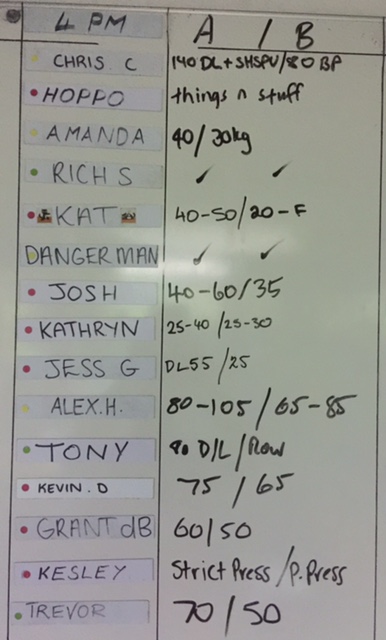 4 PM A / B
CHRIS C 140 DL + SHSPU/80 BP
HOPPO things n stuff
AMANDA 40/30kg
RICH S ✓ ✓
KAT 40-50/20-F
DANGERMAN ✓ ✓
JOSH 40-60/35
KATHRYN 25-40/25-30
JESS G DL55/25
ALEX.H. 80-105/65-85
TONY D/L/Row
KEVIN.D 75/65
GRANT dB 60/50
KESLEY Strict Press/P.Press
TREVOR 70/50